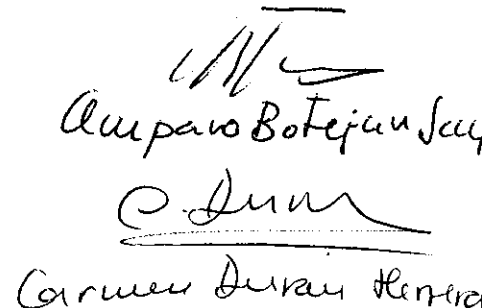 Amparo Botejan
C. Duran
Carmen Duran Herrera